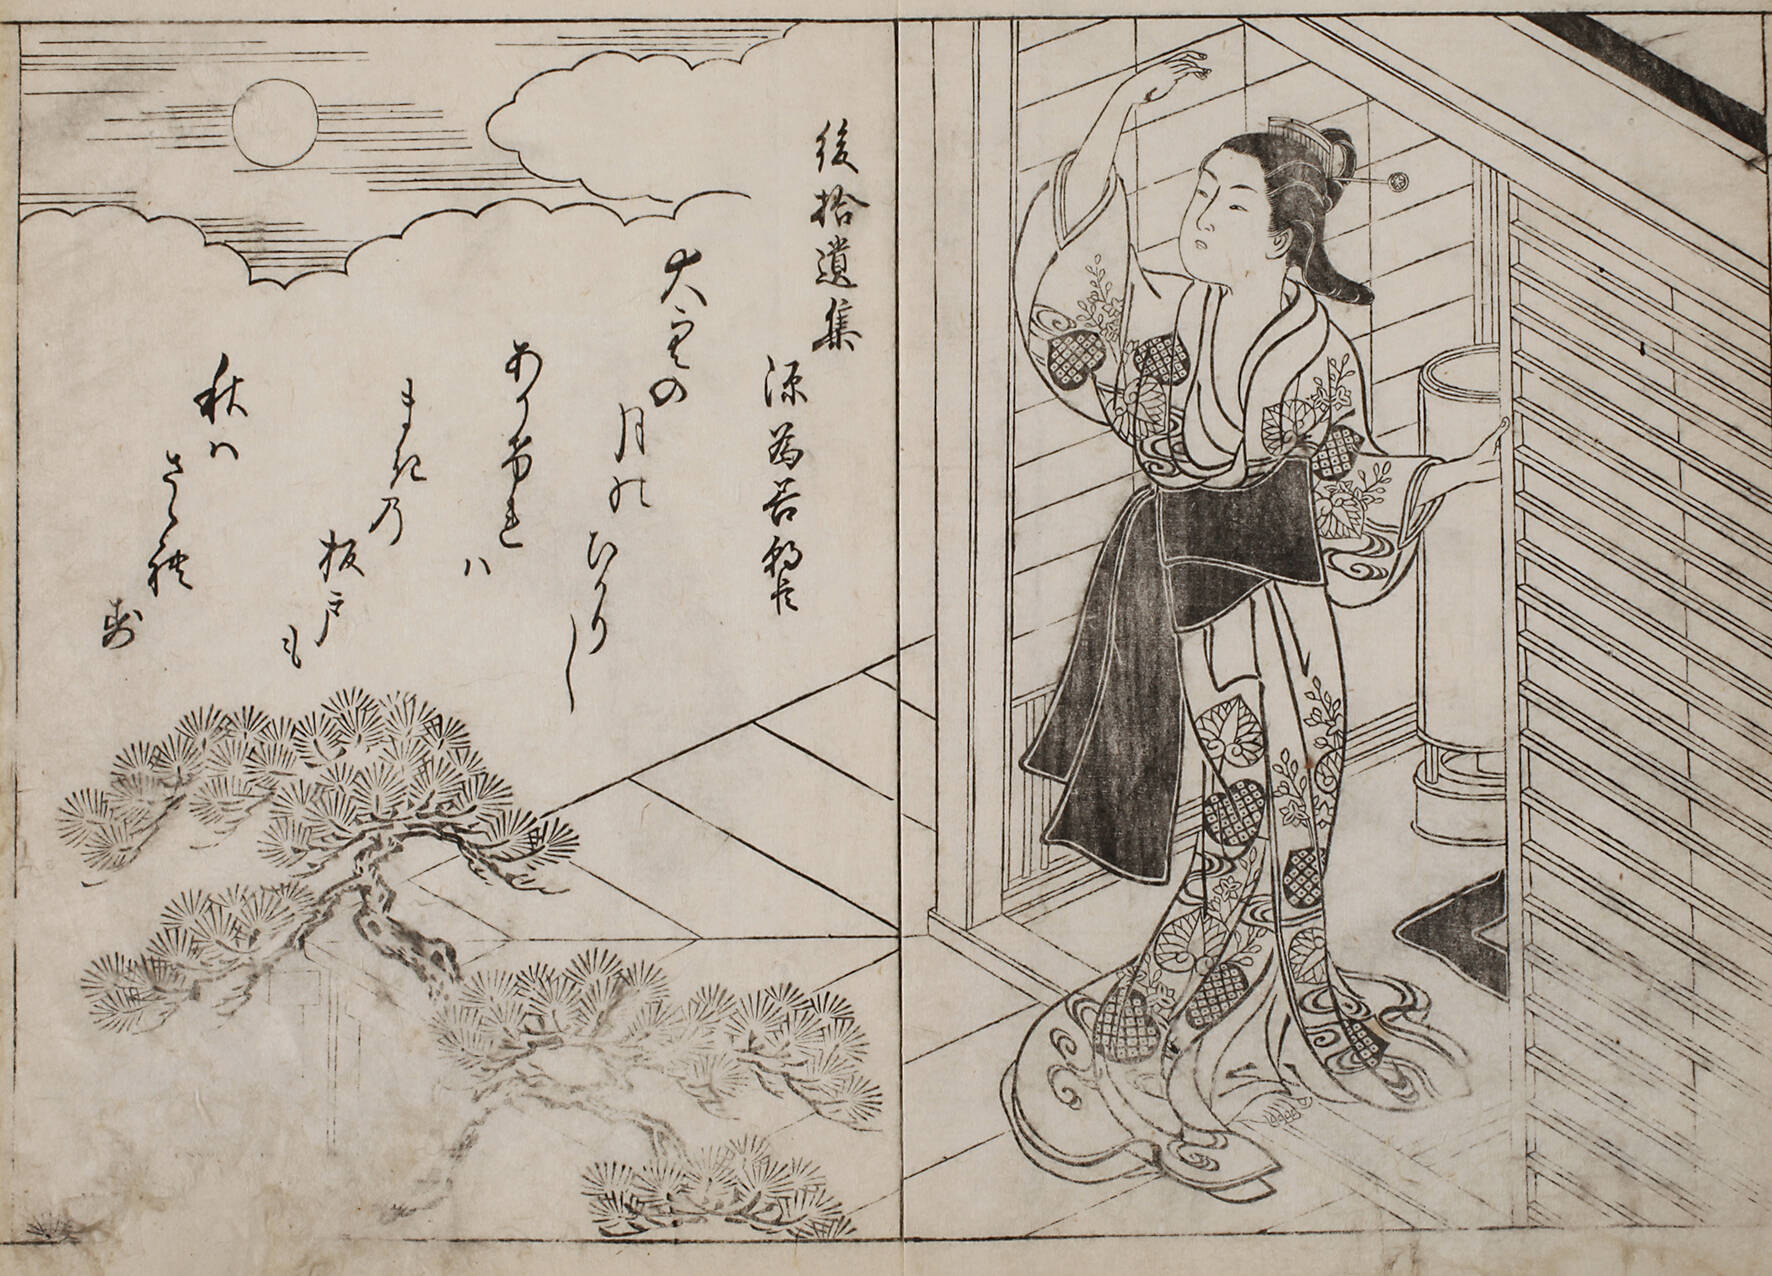 後拾遺集
源為善朝臣
大空の
月のひかりし
あかけれハ
まき乃
板戸も
秋ハ
さゝれ
す